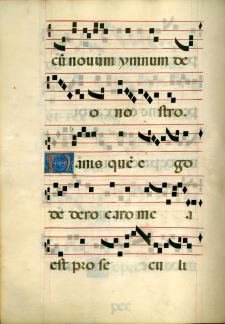 cũ novum ymnum de
o no stro.
Panis quē e go
de dero caro me a
est pro se cu li